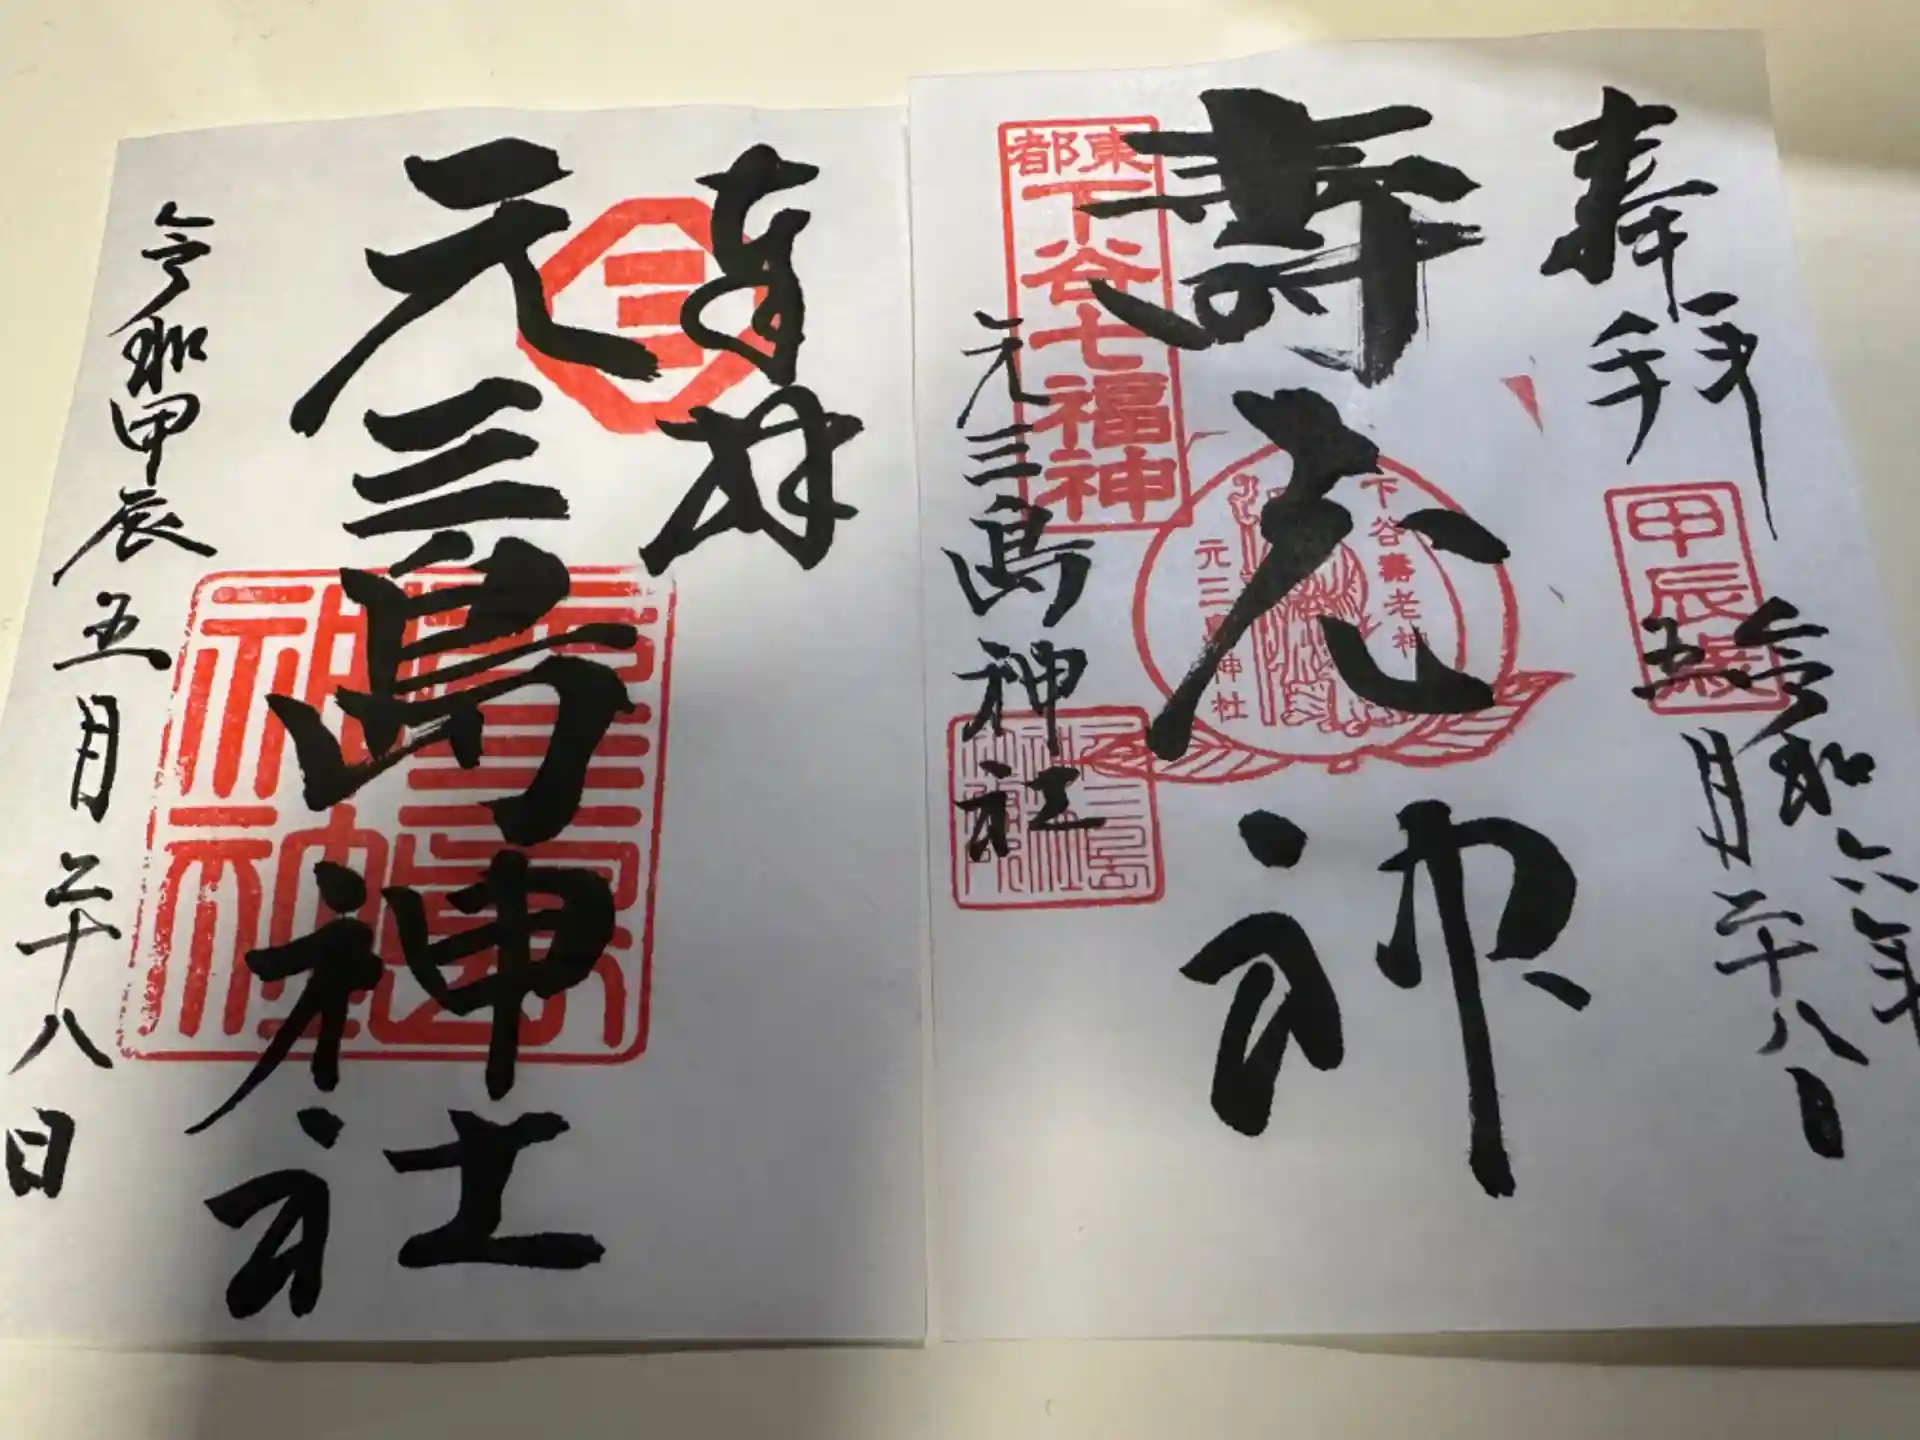 奉拝
令和六年
五月二十八日
甲辰歳
壽老神
東都
下谷七福神
下谷壽老神
元三島神社
元三島神社
奉拝
三
元三島神社
令和甲辰五月二十八日